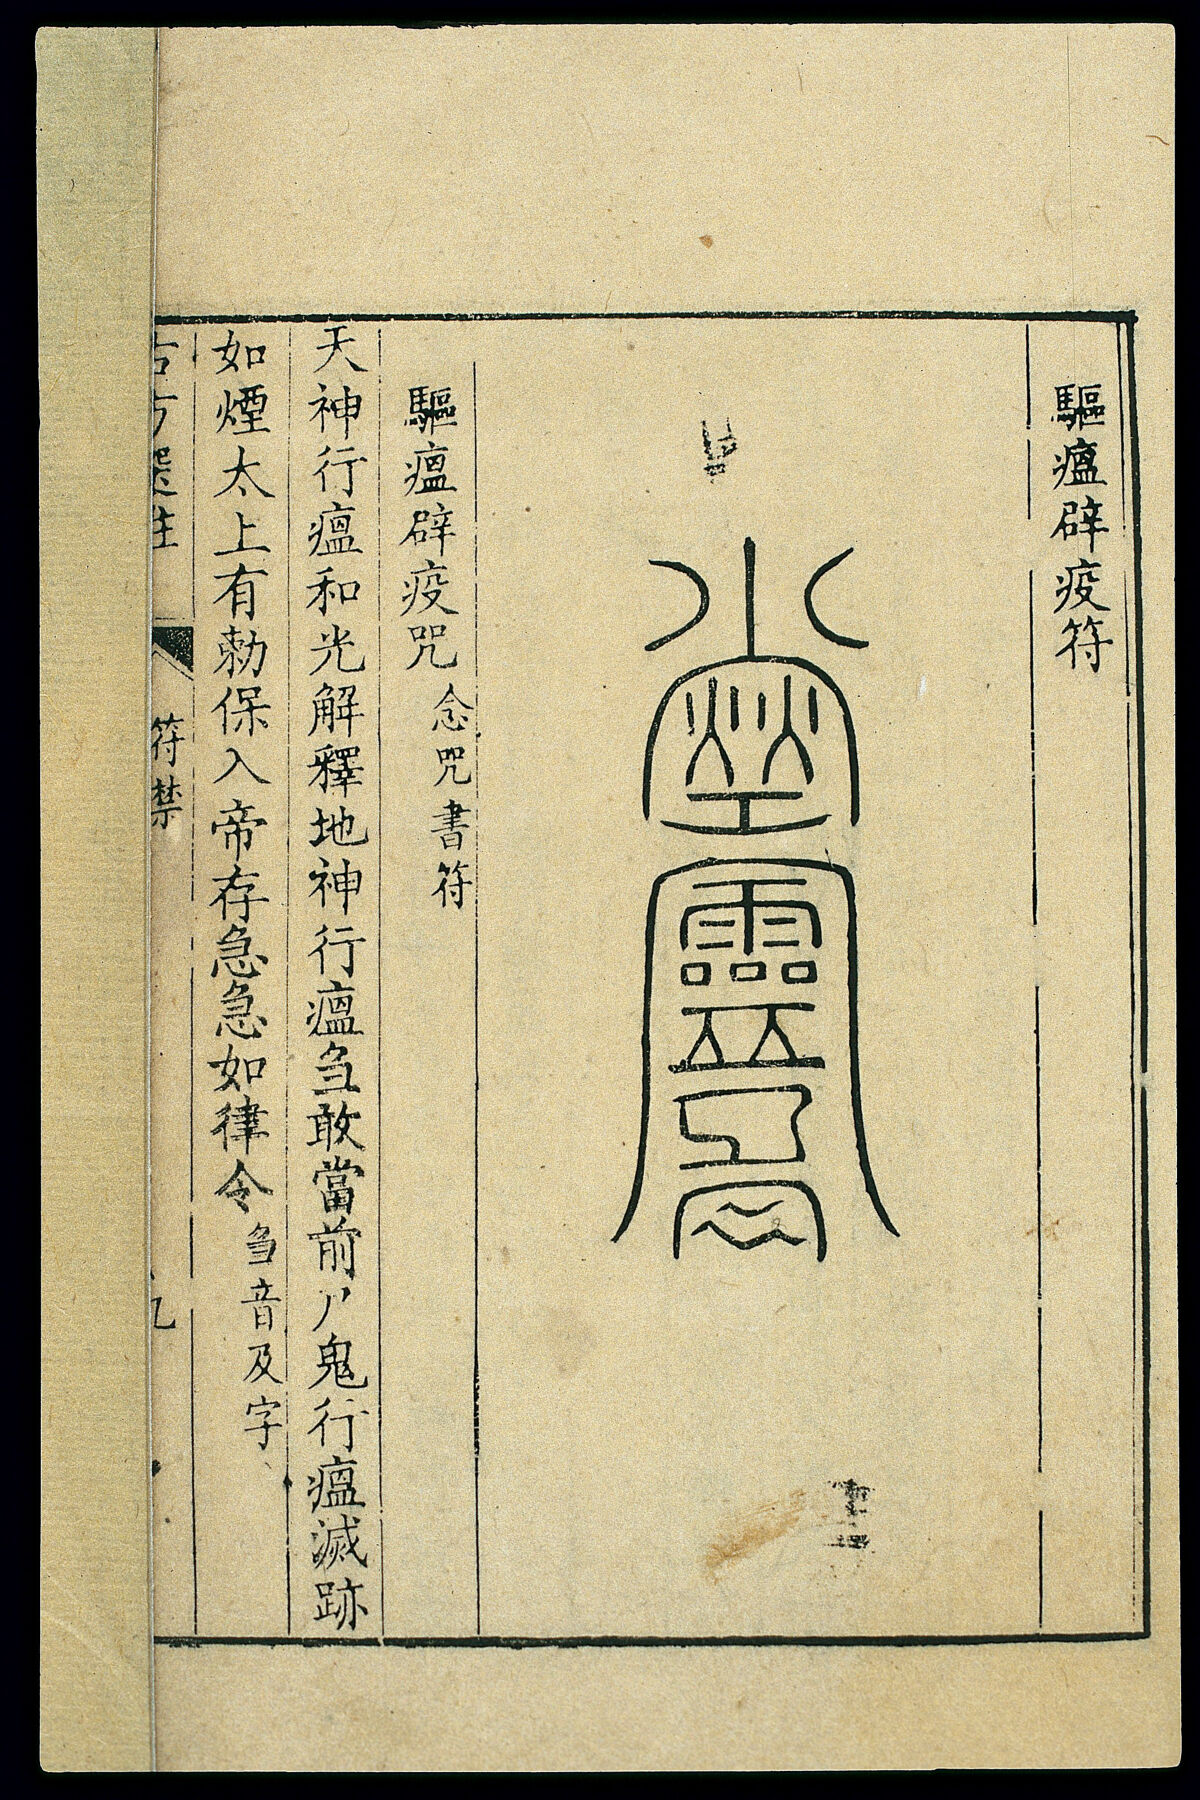 驅瘟辟疫符
驅瘟辟疫咒 念咒書符
天神行瘟和光解釋地神行瘟刍敢當前尸鬼行瘟滅跡
如煙太上有勑保入帝存急急如律令 刍音及字
符禁
九